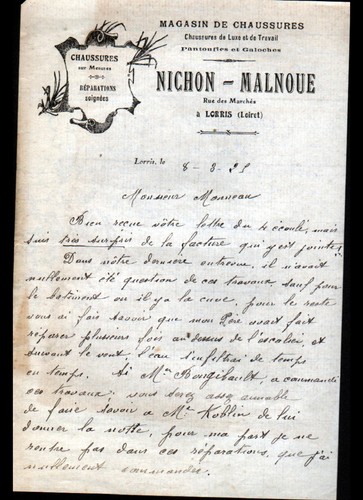 MAGASIN DE CHAUSSURES
Chaussures de Luxe et de Travail
Pantoufles et Galoches
CHAUSSURES
sur Mesures
RÉPARATIONS
soignées
NICHON - MALNOUE
Rue des Marchés
à LORRIS (Loiret)
Lorris, le 8-8-25
Monsieur Monneau
Bien reçue vôtre lettre du 4 écoulé, mais
suis très surpris de la facture qui y est jointe.
Dans nôtre dernière entrevue, il n'avait
nullement été question de ces travaux, sauf pour
le batiment ou il y a la cuve, pour le reste
vous ai fais savoir que mon Père avait fait
réparer plusieurs fois au dessus de l'escalier, et
suivant le vent, l'eau s'infiltrai de temps
en temps. Si Mr Bougibault, a commandé
ces travaux, vous serez assez aimable
de faire savoir a Mr Koblin de lui
donner la notte, pour ma part je ne
rentre pas dans ces réparations, que j'ai
nullement commandée.